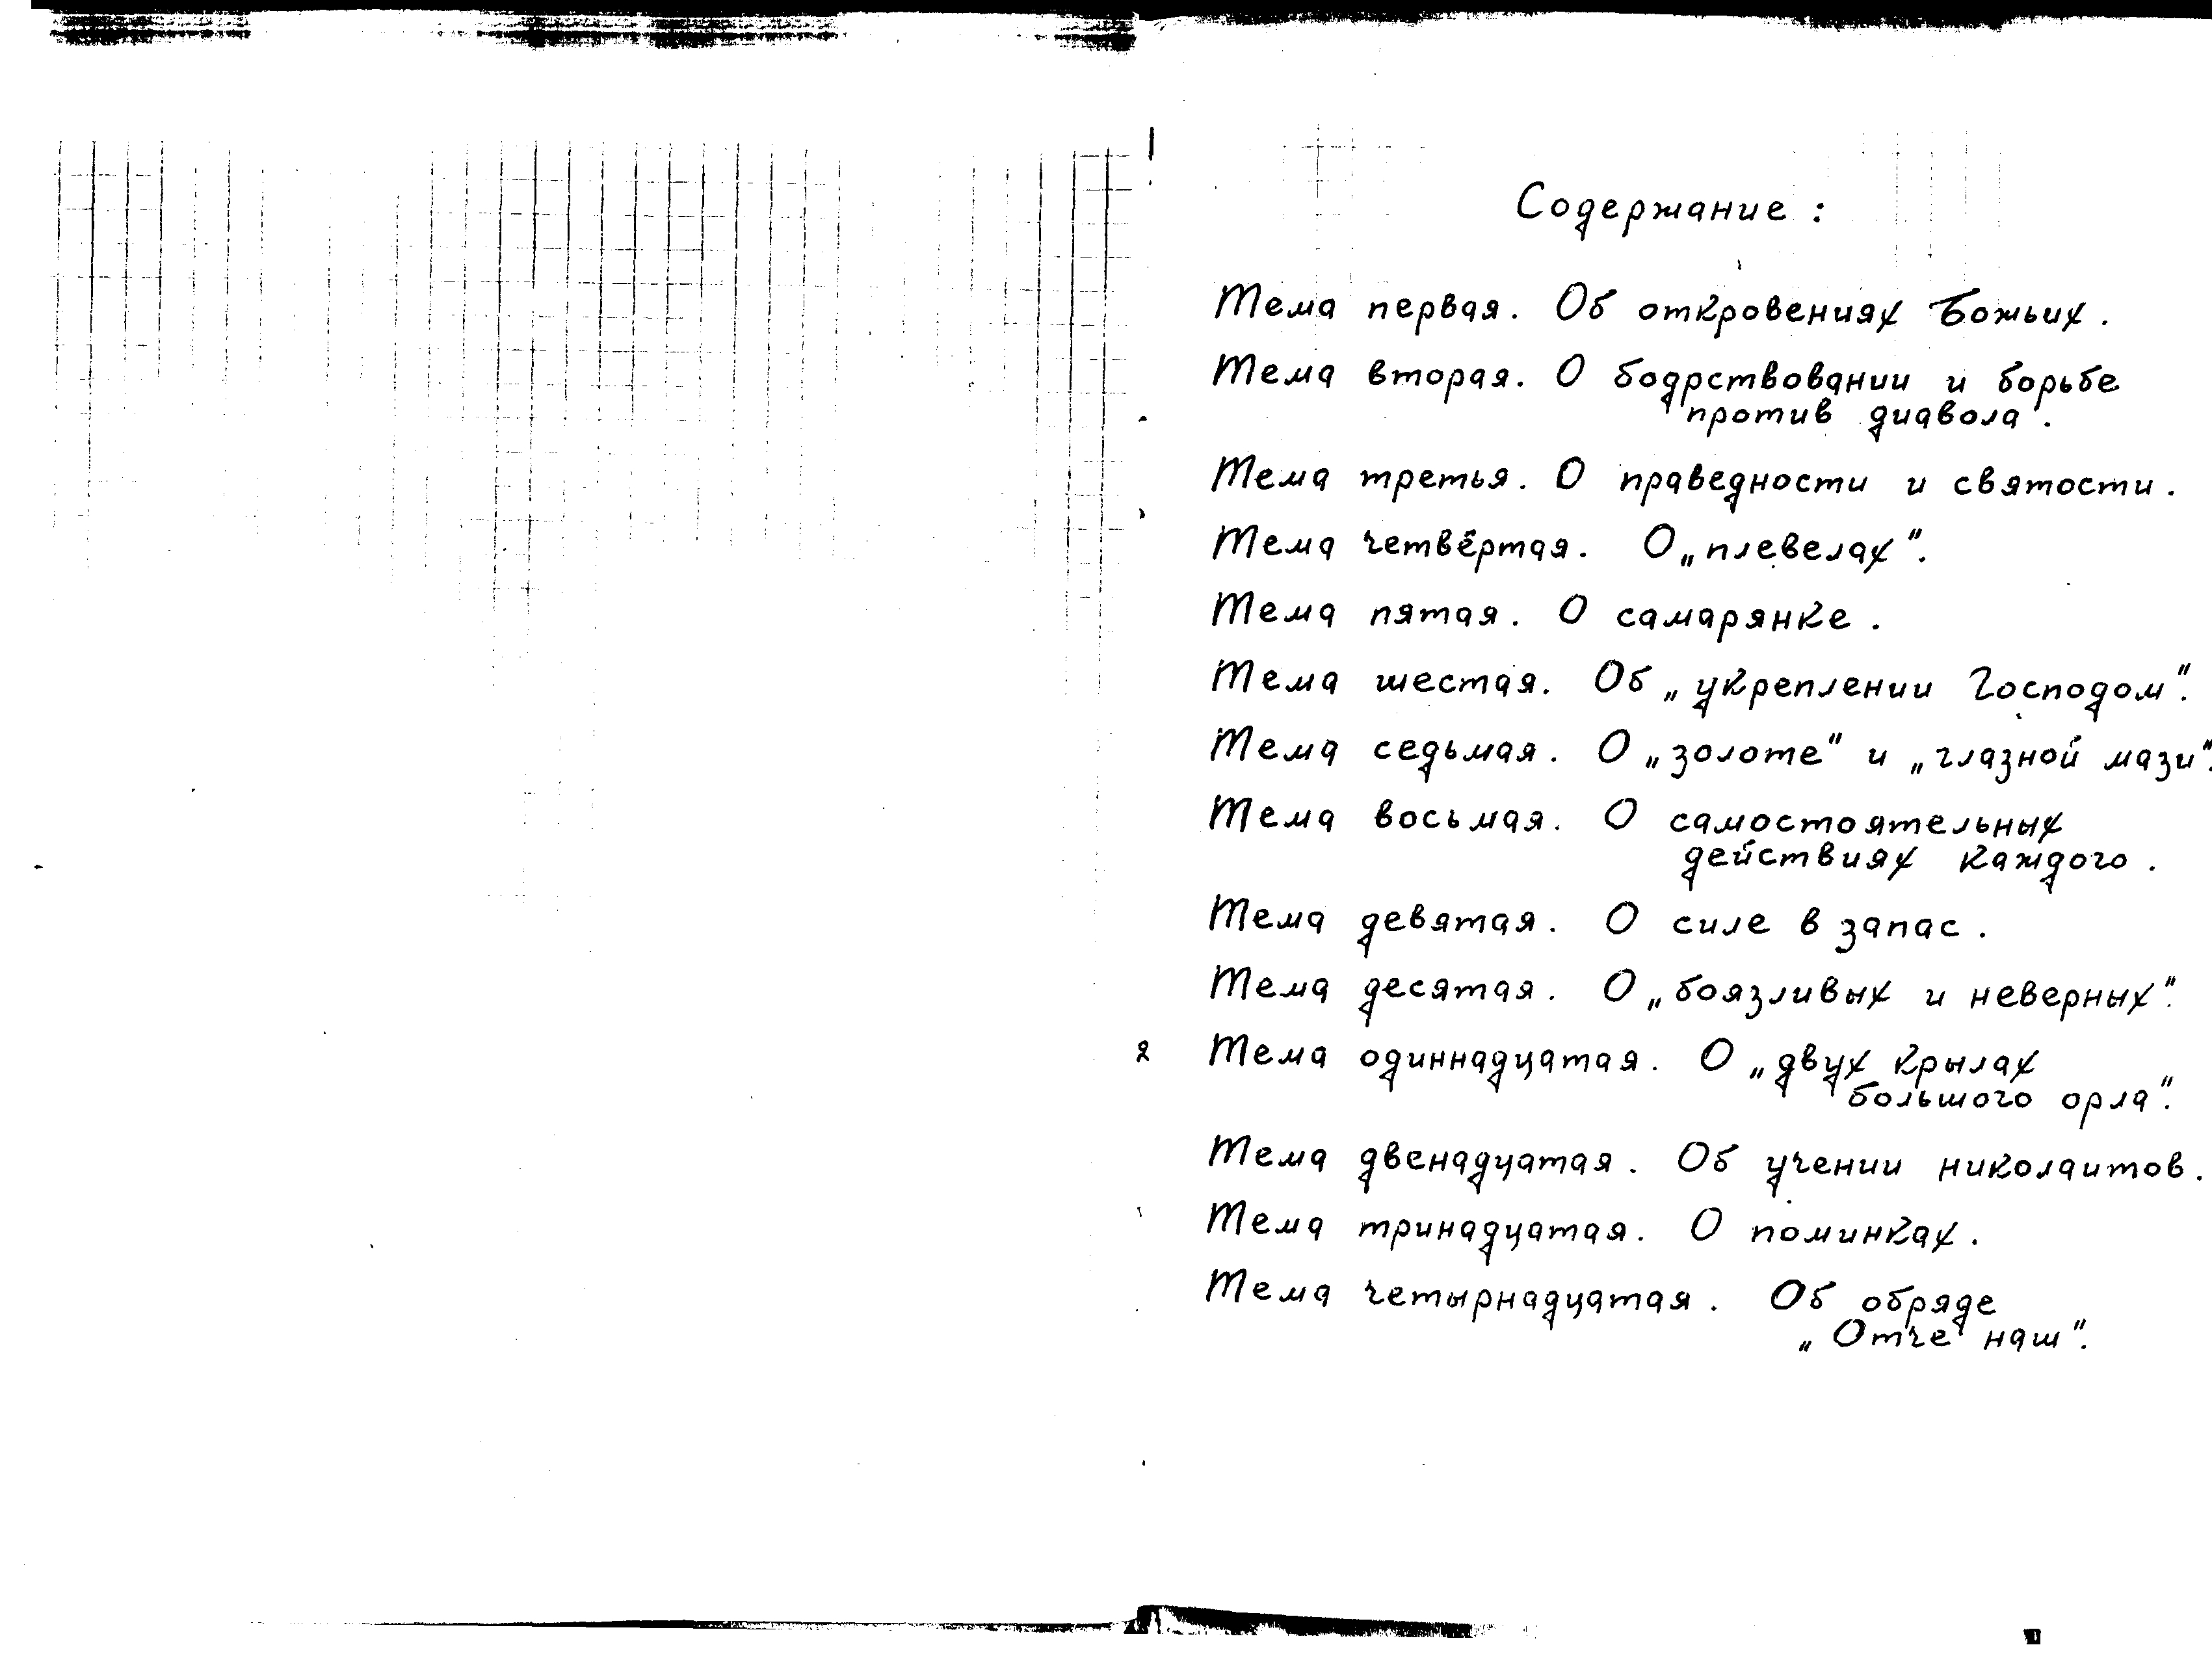 Содержание :
Тема первая. Об откровениях Божьих.
Тема вторая. О бодрствовании и борьбе
против диавола.
Тема третья. О праведности и святости.
Тема четвёртая. О „плевелах".
Тема пятая. О самарянке.
Тема шестая. Об „укреплении Господом".
Тема седьмая. О „золоте" и „глазной мази".
Тема восьмая. О самостоятельных
действиях каждого.
Тема девятая. О силе в запас.
Тема десятая. О „боязливых и неверных".
Тема одиннадцатая. О „двух крылах
большого орла".
Тема двенадцатая. Об учении николаитов.
Тема тринадцатая. О поминках.
Тема четырнадцатая. Об обряде
„Отче наш".